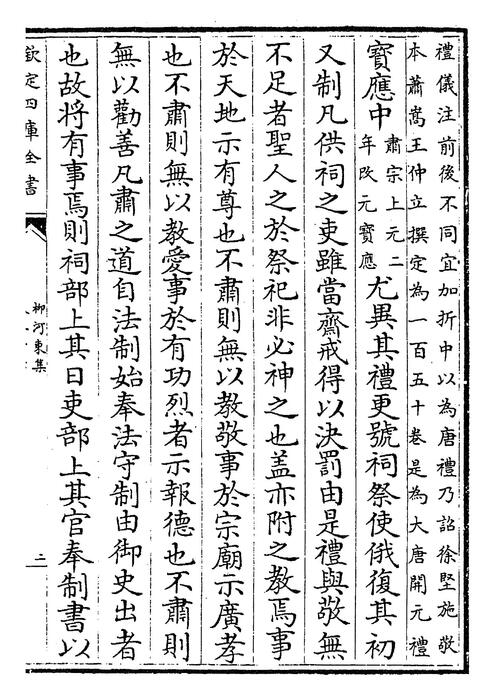 禮儀注前後不同宜加折中以為唐禮乃詔徐堅施敬
本蕭嵩王仲立撰定為一百五十卷是為大唐開元禮
寶應中
肅宗上元二
年改元寶應
尤異其禮更號祠祭使俄復其初
又制凡供祠之吏雖當齋戒得以決罰由是禮與敬無
不足者聖人之於祭祀非必神之也盖亦附之教焉事
於天地示有尊也不肅則無以教敬事於宗廟示廣孝
也不肅則無以教愛事於有功烈者示報德也不肅則
無以勸善凡肅之道自法制始奉法守制由御史出者
也故將有事焉則祠部上其日吏部上其官奉制書以
欽定四庫全書
柳河東集
二